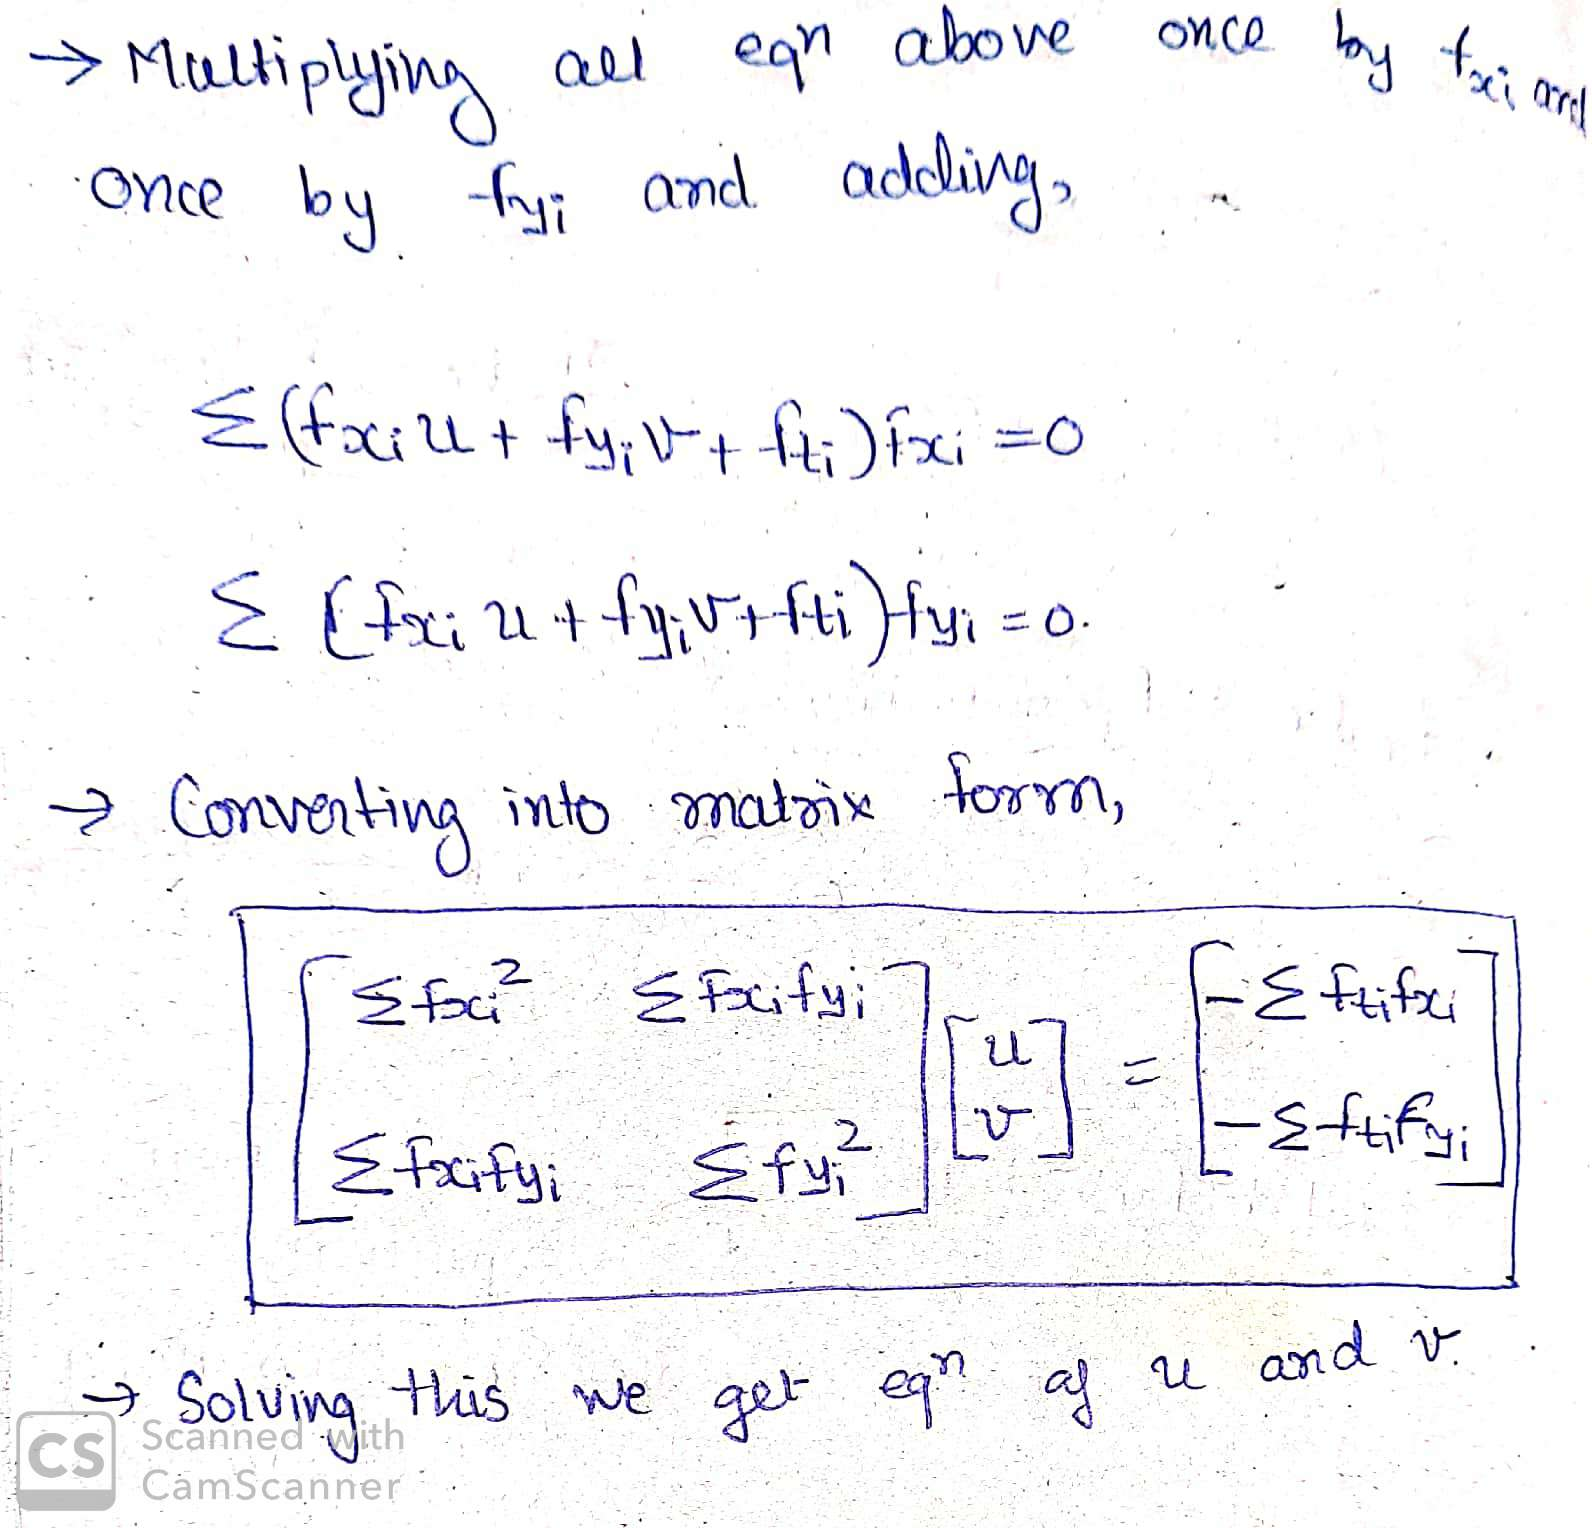 → Multiplying all eqn above once by fxi and
once by fyi and adding,
Σ(fxi u + fyi v + fti) fxi = 0
Σ (fxi u + fyi v + fti) fyi = 0.
→ Converting into matrix form,
[Σfxi² Σfxifyi] [u] = [-Σftifxi]
[Σfxifyi Σfyi²] [v] [-Σftifyi]
→ Solving this we get eqn of u and v.
CS Scanned with
CamScanner